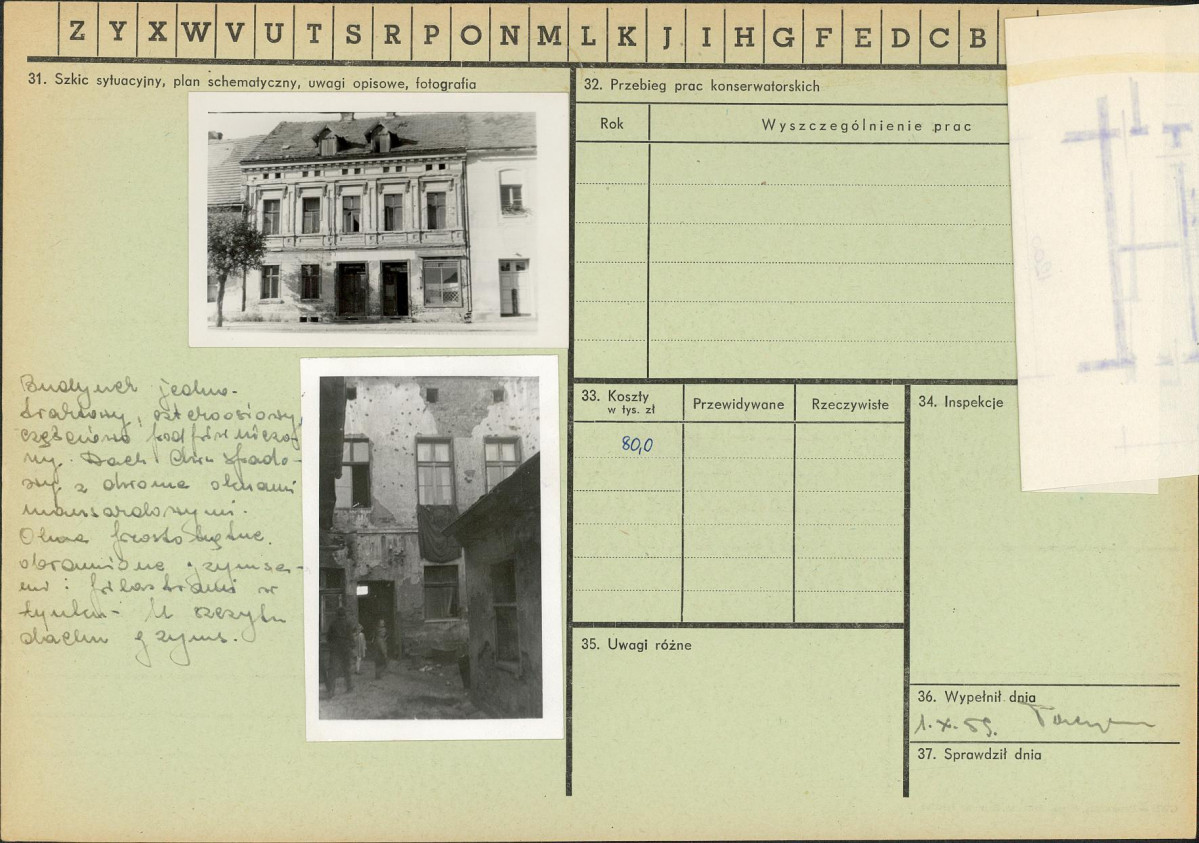 Z Y X W V U T S R P O N M L K J I H G F E D C B
31. Szkic sytuacyjny, plan schematyczny, uwagi opisowe, fotografia
Budynek jedno-
traktowy, czteroosiowy,
częściowo podpiwniczo-
ny. Dach dwuspado-
wy z dwoma oknami
mansardowymi.
Okna prostokątne
obramione gzymsa-
mi i pilastrami w
tynku. U szczytu
dachu gzyms.
32. Przebieg prac konserwatorskich
Rok Wyszczególnienie prac
33. Koszty
w tys. zł
Przewidywane
Rzeczywiste
80,0
34. Inspekcje
35. Uwagi różne
36. Wypełnił dnia
1.X.59.
37. Sprawdził dnia